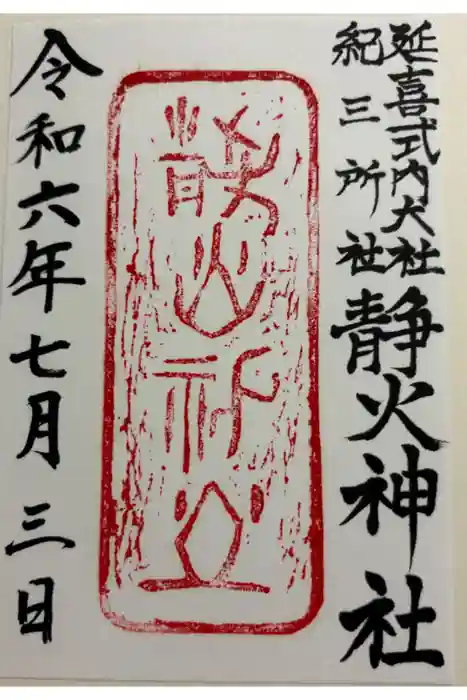 延喜式内大社
紀三所社
静火神社
静火神社
令和六年七月三日